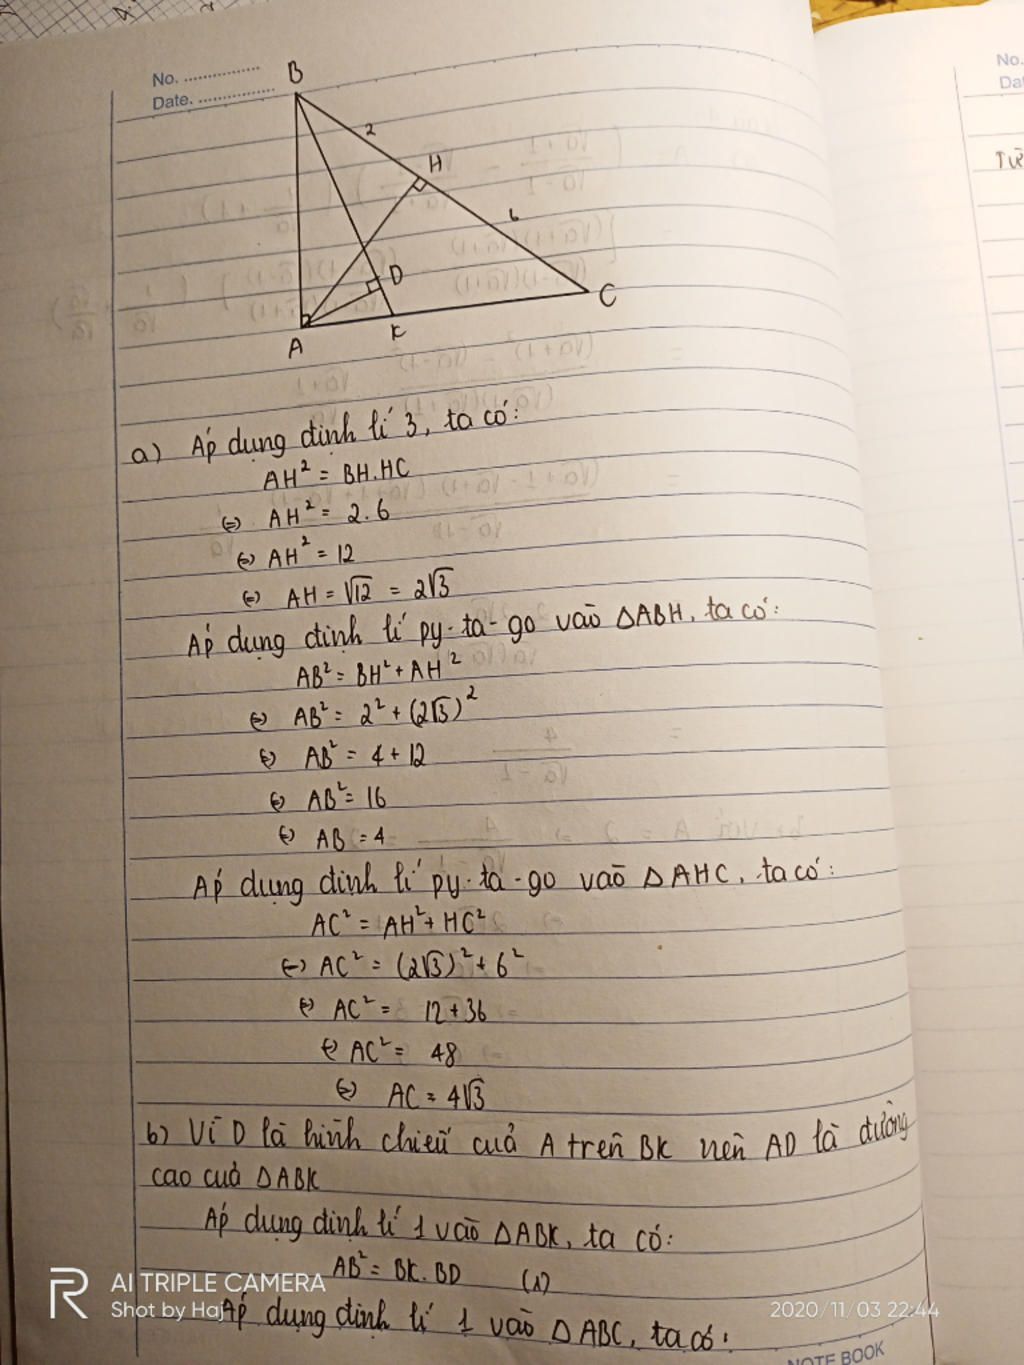 No. ...............
Date. ...............
B
2
H
6
D
C
A
K
No.
Dat
Từ
a) Áp dụng định lí 3, ta có:
AH² = BH.HC
⇔ AH² = 2.6
⇔ AH² = 12
⇔ AH = √12 = 2√3
Áp dụng định lí py-ta-go vào ΔABH, ta có:
AB² = BH² + AH²
⇔ AB² = 2² + (2√3)²
⇔ AB² = 4 + 12
⇔ AB² = 16
⇔ AB = 4
Áp dụng định lí py-ta-go vào ΔAHC, ta có:
AC² = AH² + HC²
⇔ AC² = (2√3)² + 6²
⇔ AC² = 12 + 36
⇔ AC² = 48
⇔ AC = 4√3
b) Vì D là hình chiếu của A trên BK nên AD là đường
cao của ΔABK
Áp dụng định lí 1 vào ΔABK, ta có:
AB² = BK.BD (1)
Áp dụng định lí 1 vào ΔABC, ta có:
AI TRIPLE CAMERA
Shot by Haj
2020/11/03 22:44
NOTE BOOK